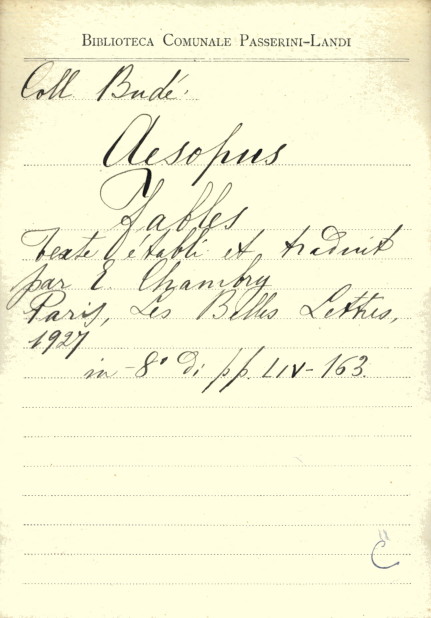 BIBLIOTECA COMUNALE PASSERINI-LANDI
Coll Budé.
Aesopus
Fables
texte établi et traduit
par E Chambry
Paris, Les Belles Lettres,
1927
in -8° di pp. LIV-163.
C